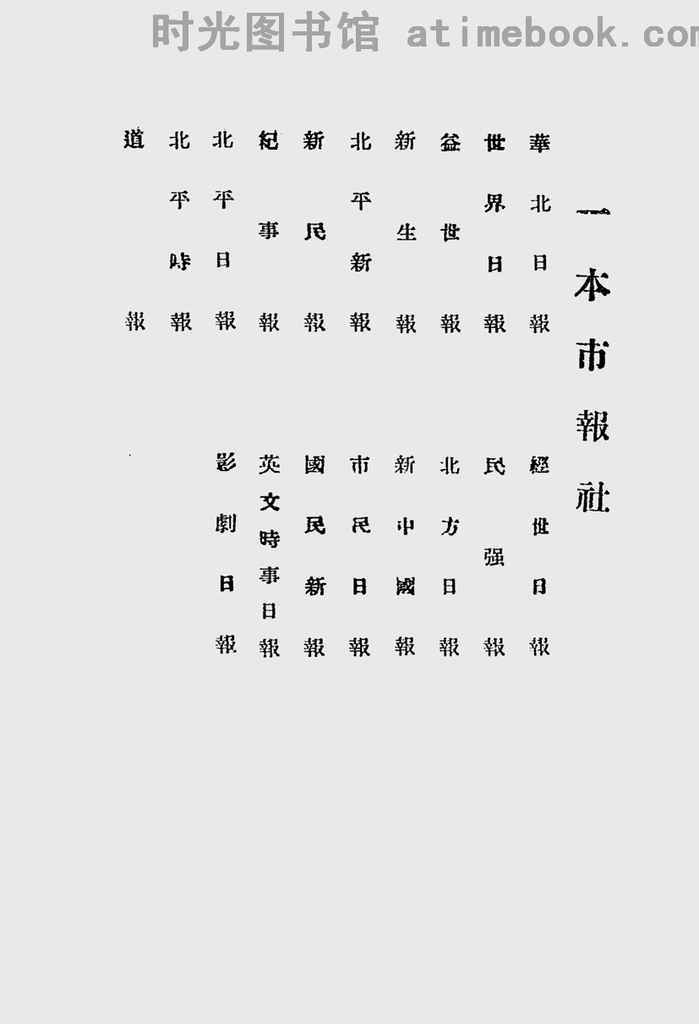 时光图书馆 atimebook.com
一本市報社
華北日報
世界日報
益世報
新生報
北平新報
新民報
紀事報
北平日報
北平時報
道報
經世日報
民强報
北方日報
新中國報
市民日報
國民新報
英文時事日報
影劇日報